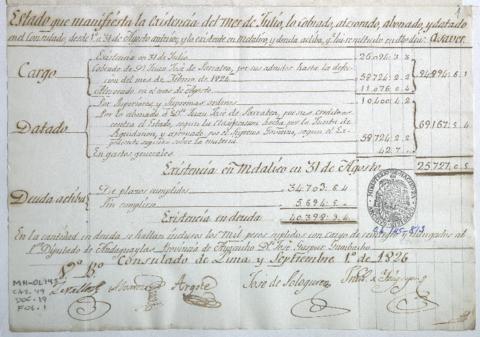 Estado que manifiesta la existencia del mes de Julio, lo cobrado, atesorado, abonado, y datado
en el Consulado, desde 1º á 31 de Agosto anterior, y la existente en Metalico, y deuda activa, que ha resultado en dho dia: Asaver.
Cargo
Existencia en 31 de Julio 26,094.3.3
Cobrado de D. Juan José de Sarratea, por sus adeudos hasta la
ción del mes de Febrero de 1824 58,724.2.2
Atesorado en el mes de Agosto 11,076.0.4
94,894.6.1
Datado
Por Superiores, y Supremas ordenes 10,400.4.2
Por lo abonado á D. Juan José de Sarratea, por sus creditos
contra el Estado, segun la Clasificacion hecha por la Junta de
Liquidacion, y aprobado por el Supremo Gobierno, segun el Ex-
pediente seguido sobre la materia 58,724.2.2
En gastos generales 42.7
69,167.5.4
Existencia en Metalico en 31 de Agosto 25,727.0.5
Deuda activa
De plazos cumplidos 34,703.6.4
Sin cumplirse 5,694.5
Existencia en deuda 40,398.3.4
En la cantidad en deuda se hallan inclusos los mil pesos suplidos con cargo de reintegro, y
Diputado de Andaguaylas, Provincia de Ayacucho D. José Gaspar
Consulado de Lima y Septiembre 1º de 1826
Vº Bº
Argote
José de
MH-OL 145
CAJ. 49
DOC. 19
FOL. 1